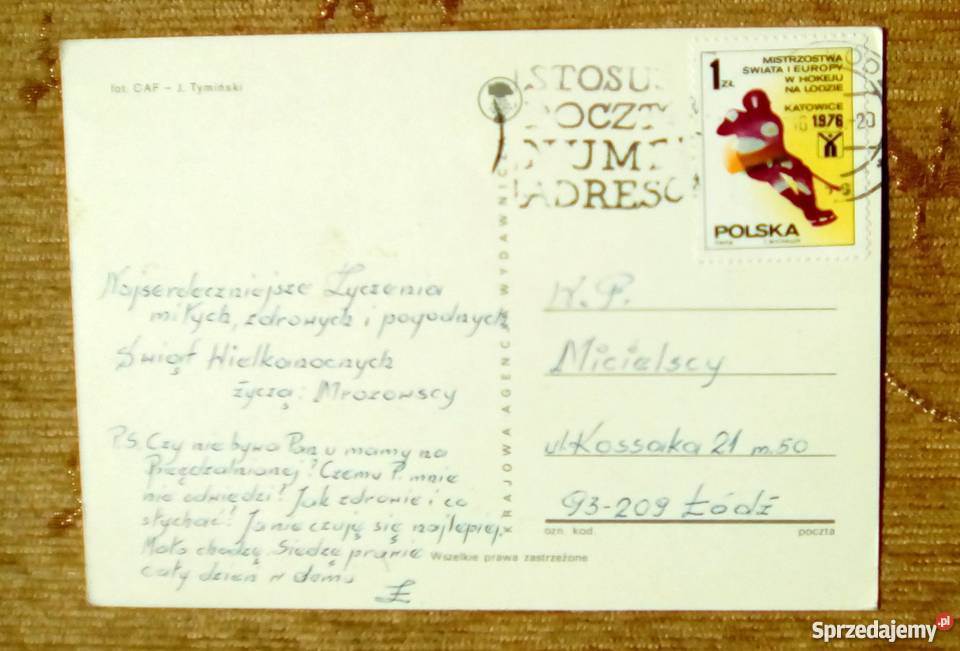 fot. CAF – J. Tymiński
STOSUJ
POCZT
NUME
ADRESO
1 ZŁ
MISTRZOSTWA
ŚWIATA I EUROPY
W HOKEJU
NA LODZIE
KATOWICE
1976
POLSKA
Najserdeczniejsze Życzenia
miłych, zdrowych i pogodnych
Świąt Wielkanocnych
życzą: Mrozowscy
P.S. Czy nie bywa Pan u mamy na
Przędzalnianej? Czemu P. mnie
nie odwiedzi? Jak zdrowie i co
słychać? Ja nie czuję się najlepiej.
Mało chodzę. Siedzę prawie
cały dzień w domu
KRAJOWA AGENCJA WYDAWNICZA
W.P.
Micielscy
ul. Kossaka 21 m. 50
93-209 Łódź
ozn. kod. poczta
Wszelkie prawa zastrzeżone
Sprzedajemy.pl